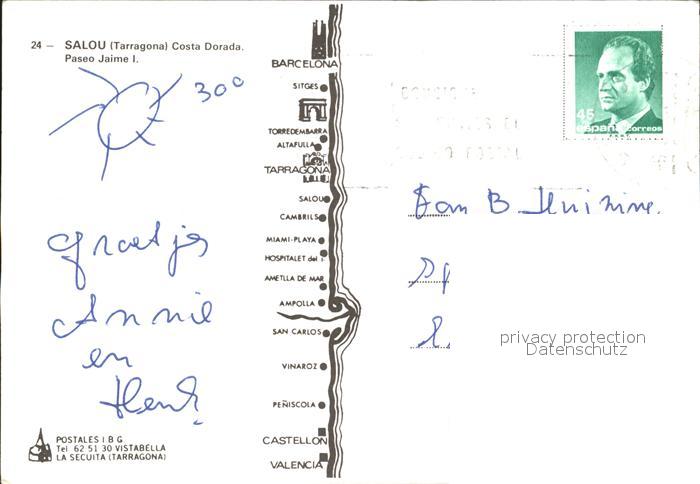 24 — SALOU (Tarragona) Costa Dorada.
Paseo Jaime I.
30°
groetjes
Annie
en
Henk
POSTALES I B G
Tel 62 51 30 VISTABELLA
LA SECUITA (TARRAGONA)
BARCELONA
SITGES
TORREDEMBARRA
ALTAFULLA
TARRAGONA
SALOU
CAMBRILS
MIAMI-PLAYA
HOSPITALET del I.
AMETLLA DE MAR
AMPOLLA
SAN CARLOS
VINAROZ
PEÑISCOLA
CASTELLON
VALENCIA
45
españa correos
Fam B
privacy protection
Datenschutz